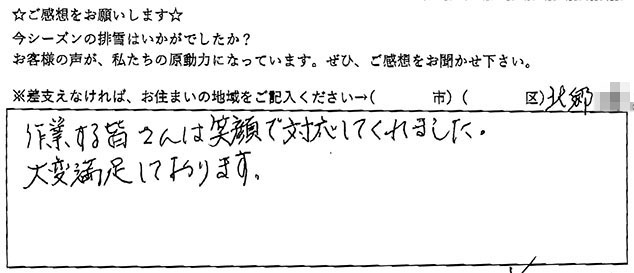 ☆ご感想をお願いします☆
今シーズンの排雪はいかがでしたか？
お客様の声が、私たちの原動力になっています。ぜひ、ご感想をお聞かせ下さい。
※差支えなければ、お住まいの地域をご記入ください→(　　　　市) (　　　　区) 北郷
作業する皆さんは笑顔で対応してくれました。
大変満足しております。